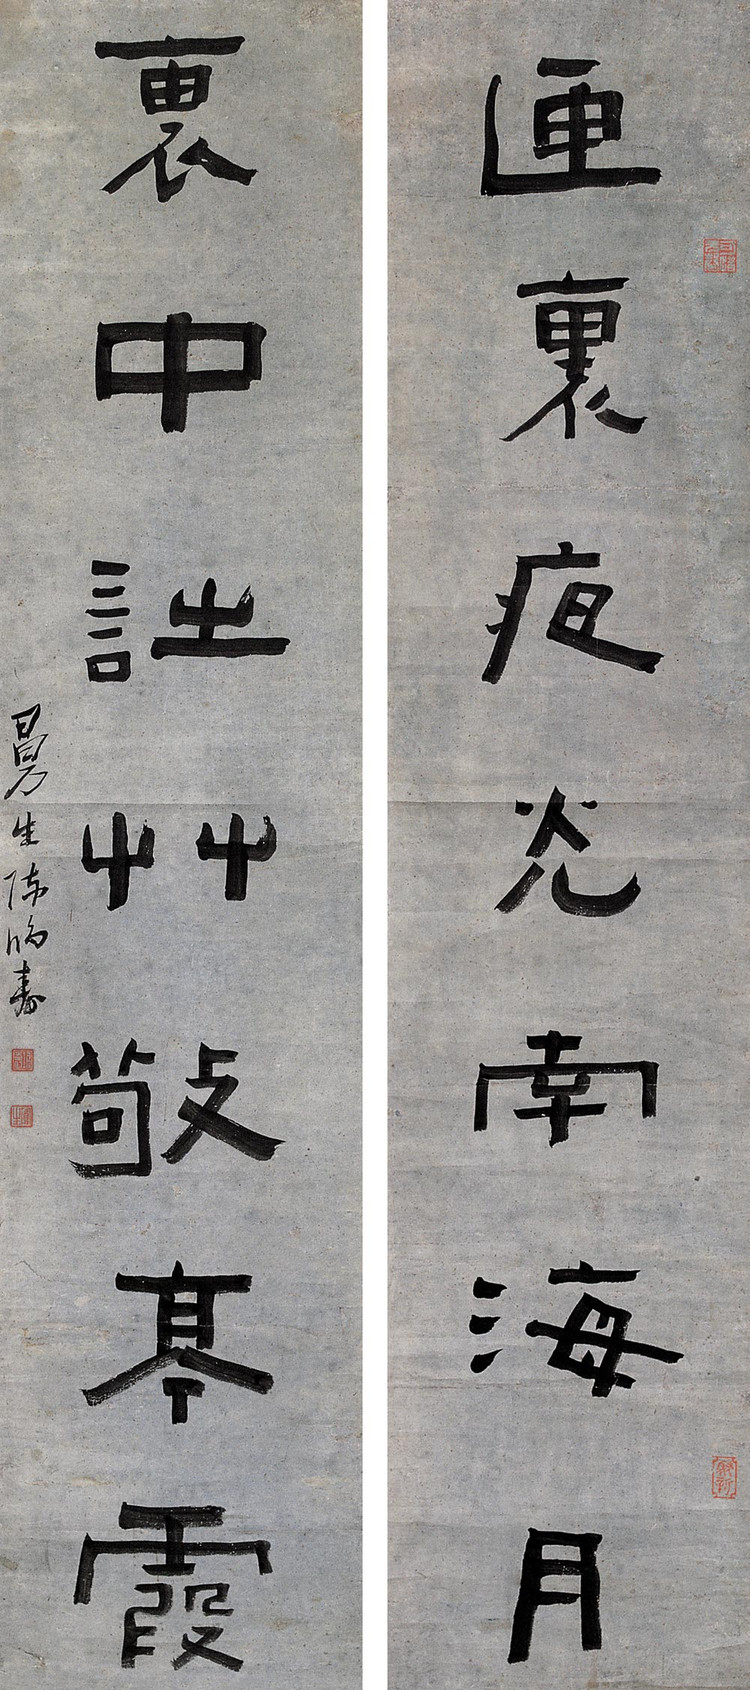 匣裏夜光南海月
囊中詩艸敬亭霞
曼生陳鴻壽